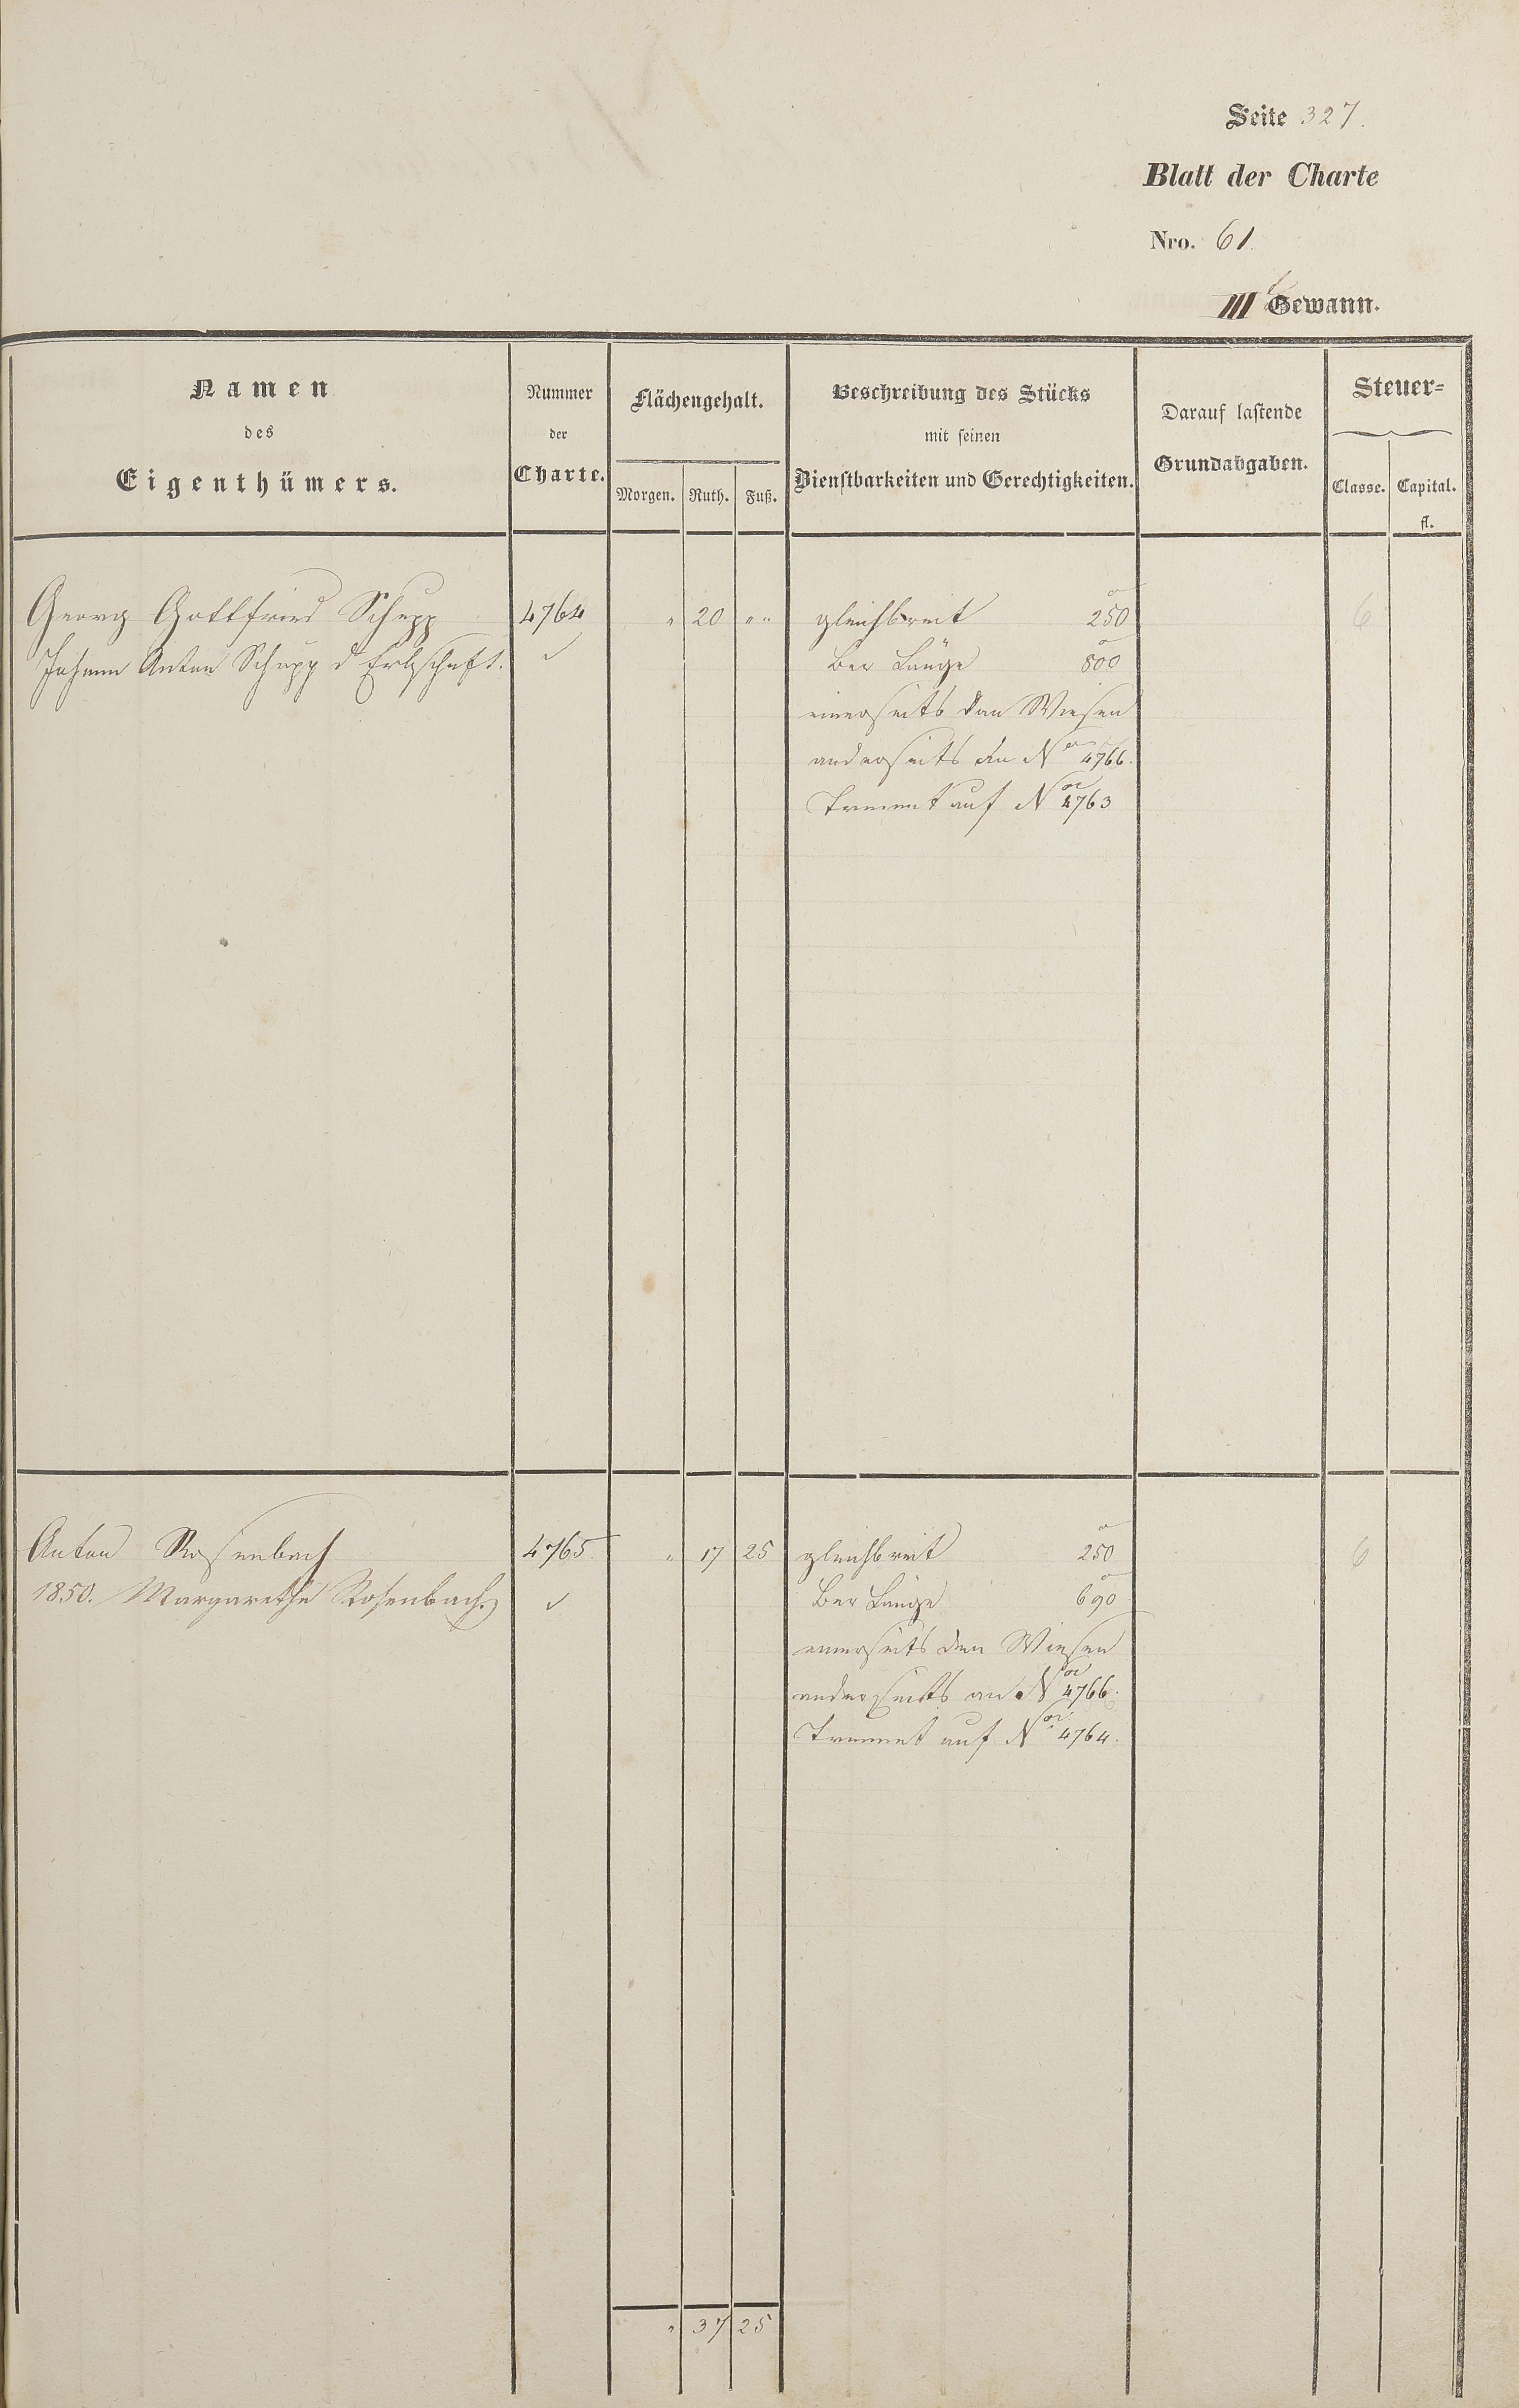 Seite 327.
Blatt der Charte
Nro. 61.
III Gewann.
Namen
des
Eigenthümers.
Nummer
der
Charte.
Flächengehalt.
Morgen. Ruth. Fuß.
Beschreibung des Stücks
mit seinen
Dienstbarkeiten und Gerechtigkeiten.
Darauf lastende
Grundabgaben.
Steuer-
Classe. Capital.
fl.
Georg Gottfried Schupp 4764 " 20 " " gleichbreit 250 6
Johann Anton Schupp d Erbschaft. Länge 800
einerseits den Wiesen
anderseits den No 4766.
auf No 4763
Anton Rosenbach 4765. " 17 25 gleichbreit 250 6
1850. Margarethe Rosenbach. Länge 690
einerseits den Wiesen
anderseits an No 4766.
auf No 4764.
" 37 25